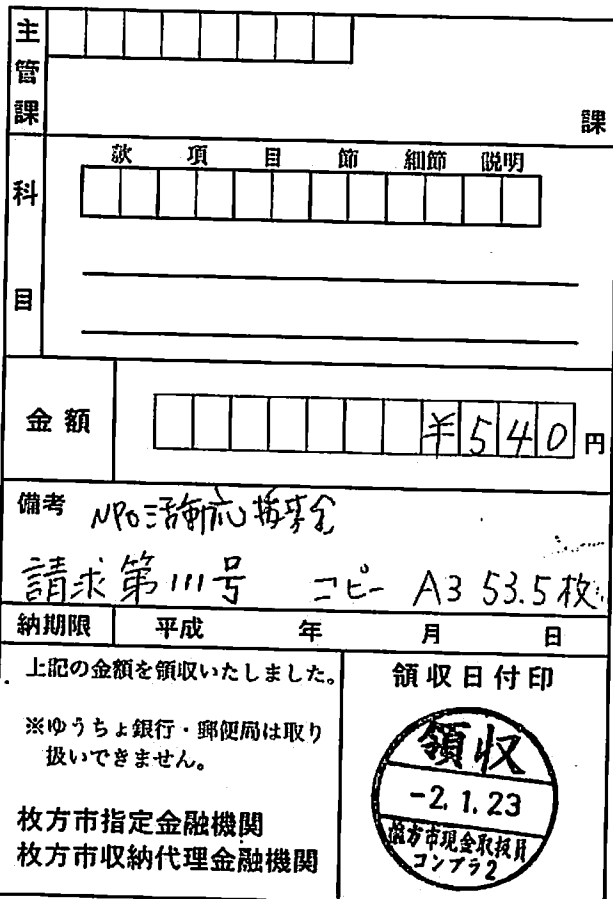 主管課
課
科目
款 項 目 節 細節 説明
金額 ¥540円
備考 NPO活動応援基金
請求第111号 コピー A3 53.5枚
納期限 平成 年 月 日
上記の金額を領収いたしました。
※ゆうちょ銀行・郵便局は取り
扱いできません。
枚方市指定金融機関
枚方市収納代理金融機関
領収日付印
領収
-2.1.23
枚方市現金取扱員
コンプラ2